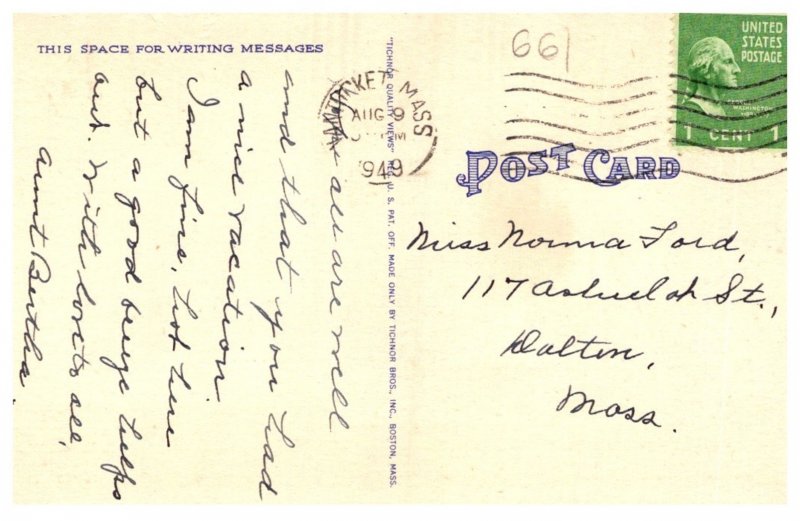 THIS SPACE FOR WRITING MESSAGES
all are well
and that you had
a nice vacation.
I am fine, hot here
but a good breeze helps
out. With love to all,
Aunt Bertha.
"TICHNOR QUALITY VIEWS" REG. U. S. PAT. OFF. MADE ONLY BY TICHNOR BROS., INC., BOSTON, MASS.
MASS
AUG 9
1949
661
UNITED
STATES
POSTAGE
GEORGE
WASHINGTON
1 CENT 1
POST CARD
Miss Norma Ford,
117 Ashuelot St.,
Dalton,
Mass.